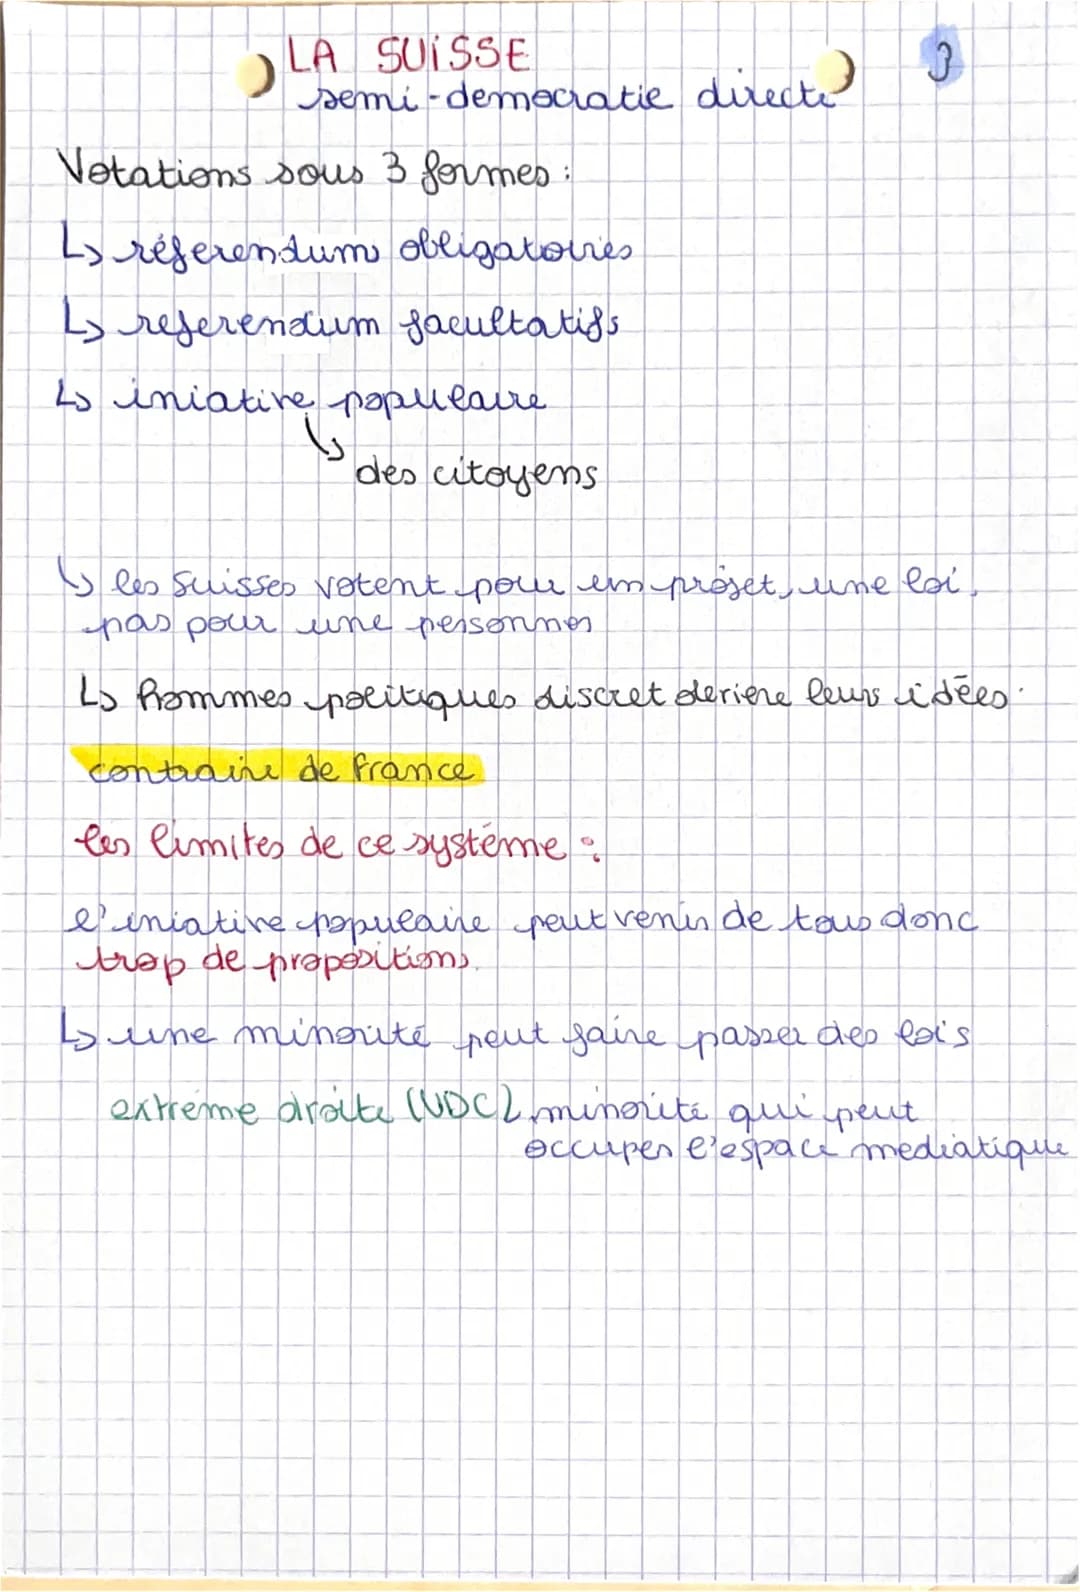 LA SUISSE
3
semi-democratie directe
Votations sous 3 formes :
↳ réferendum obligatoires
↳ referendum facultatifs
↳ iniative populaire
↳ des citoyens
↳ les Suisses votent pour un projet, une loi,
pas pour une personnes
↳ hommes politiques discret deriere leurs idées.
contraire de france
les limites de ce système :
l'iniative populaire peut venir de tous donc
trop de propositions.
↳ une minorité peut faire passer des lois
extreme droite (UDC), minorité qui peut
occuper l'espace mediatique